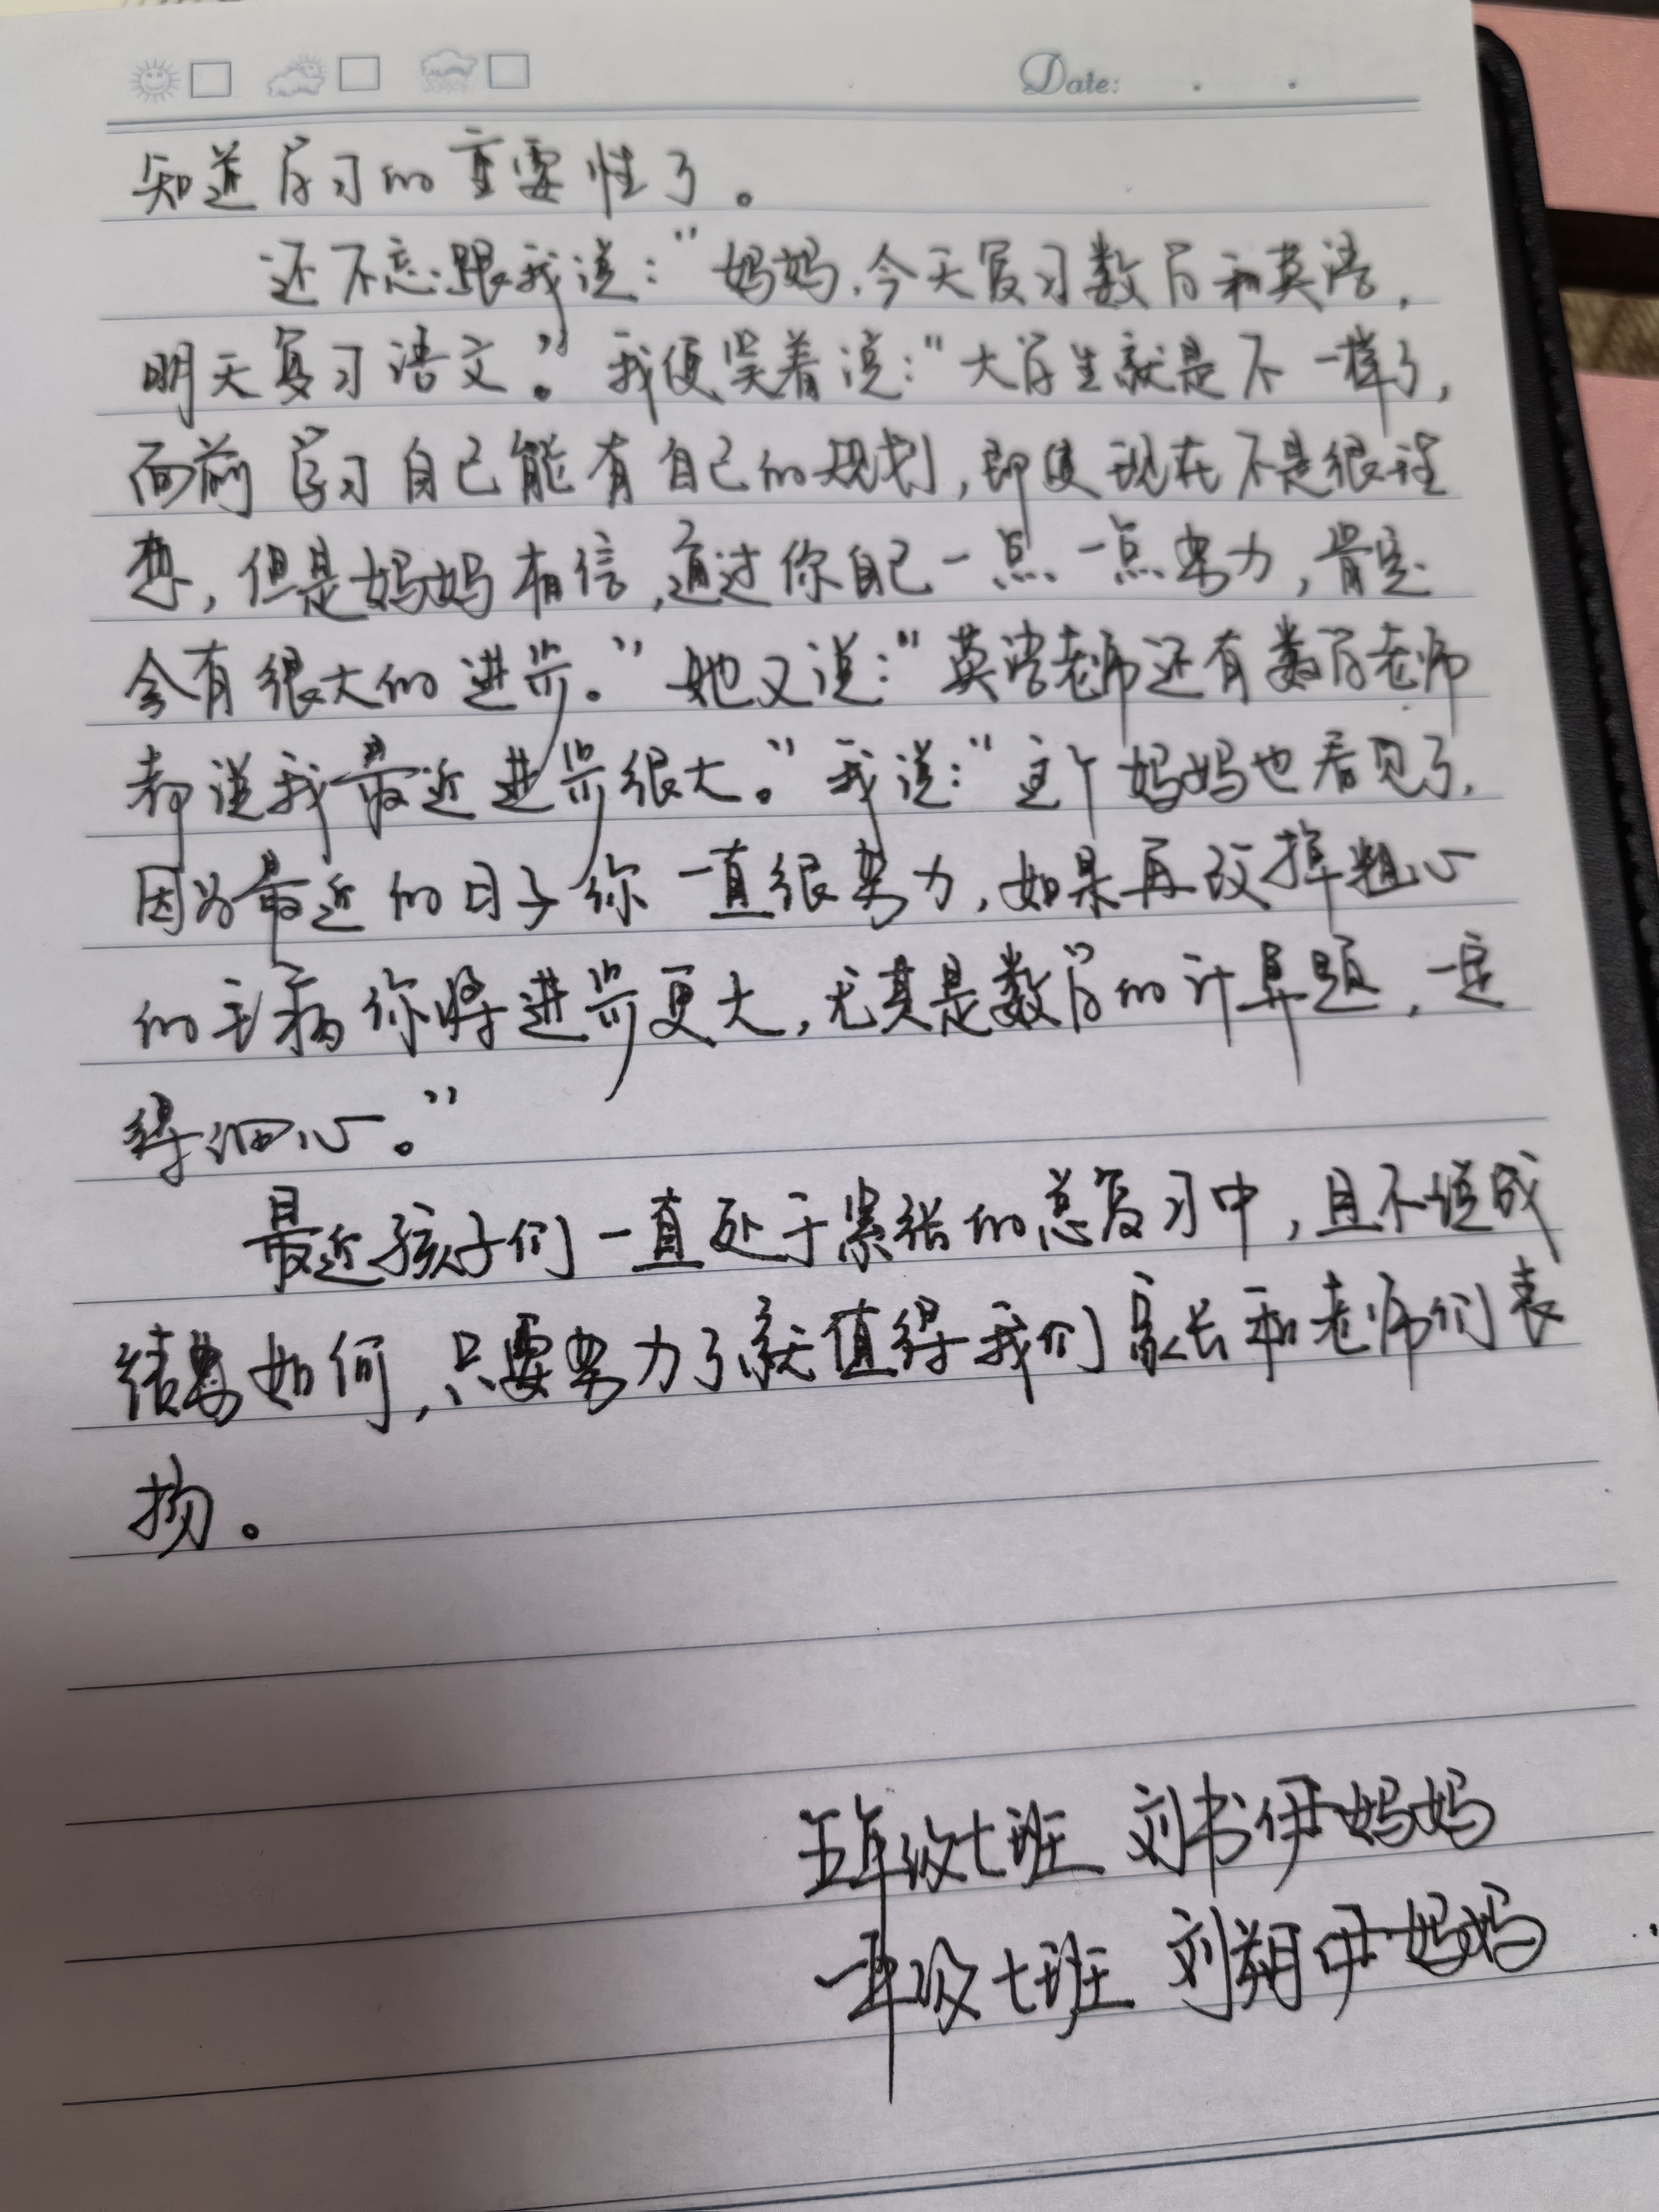 Date:
知道学习的重要性了。
还不忘跟我说：“妈妈，今天复习数学和英语，
明天复习语文。”我便笑着说：“大学生就是不一样了，
面前学习自己能有自己的规划，即使现在不是很理
想，但是妈妈相信，通过你自己一点一点努力，肯定
会有很大的进步。”她又说：“英语老师还有数学老师
都说我最近进步很大。”我说：“这个妈妈也看见了，
因为最近的日子你一直很努力，如果再改掉粗心
的毛病你将进步更大，尤其是数学的计算题，一定
得细心。”
最近孩子们一直处于紧张的总复习中，且不说成
绩如何，只要努力了就值得我们家长和老师们表
扬。
五年级七班 刘书伊妈妈
一年级七班 刘朔伊妈妈